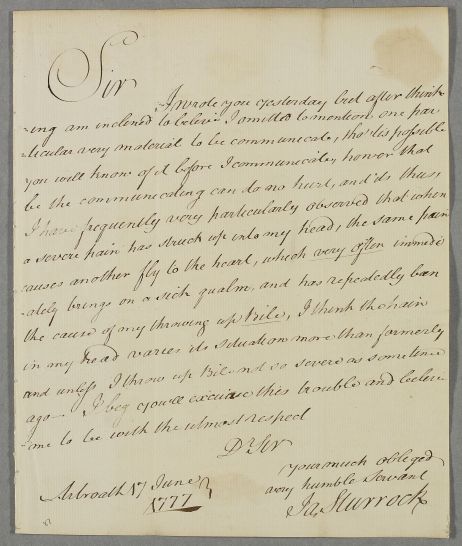 Sir
I wrote you yesterday but after think
-ing am inclined to believe I omitted to mention one par
-ticular very material to be communicate, tho' tis possible
you will know of it before I communicate, howevr that
be the communicating can do no hurt, and 'tis thus,
I have frequently very particularly observed that when
a severe pain has struck up into my head, the same pain
causes another fly to the heart, which very often immedi
-ately brings on a sick qualm, and has repeatedly been
the cause of my throwing up Bile, I think the pain
in my head varies its situation more than formerly
and unless I throw up Bile not so severe as some time
ago - I beg you'll excuse this trouble and believe
me to be with the utmost respect
Dr Sir
your much obliged
very humble Servant
Ja, Sturrock
Arbroath 17 June
1777